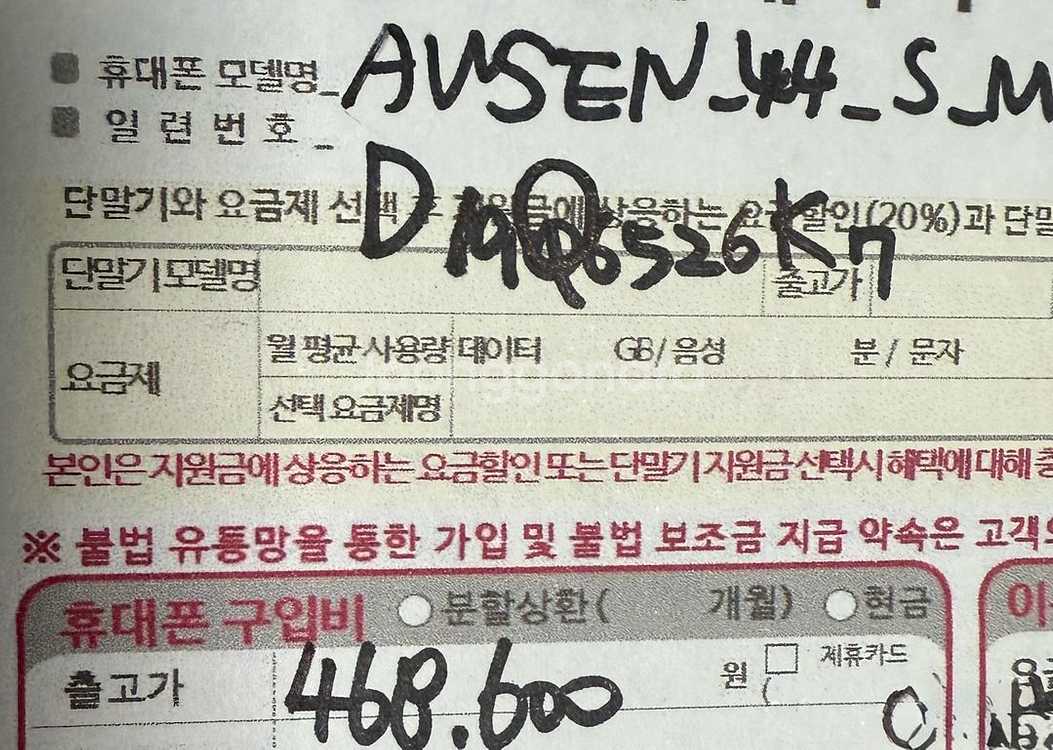 ■ 휴대폰 모델명 AWSEN_44_S_M
■ 일 련 번 호
D19Q6526K7
단말기와 요금제 선택 후 지원금에 상응하는 요금할인(20%)과 단말
단말기모델명 출고가
요금제 월 평균사용량 데이터 GB/음성 분 / 문자
선택요금제명
본인은 지원금에 상응하는 요금할인 또는 단말기 지원금 선택 시 혜택에 대해 충
※ 불법 유통망을 통한 가입 및 불법 보조금 지급 약속은 고객의
휴대폰 구입비 분할상환( 개월) 현금
출고가 468.600 원 제휴카드